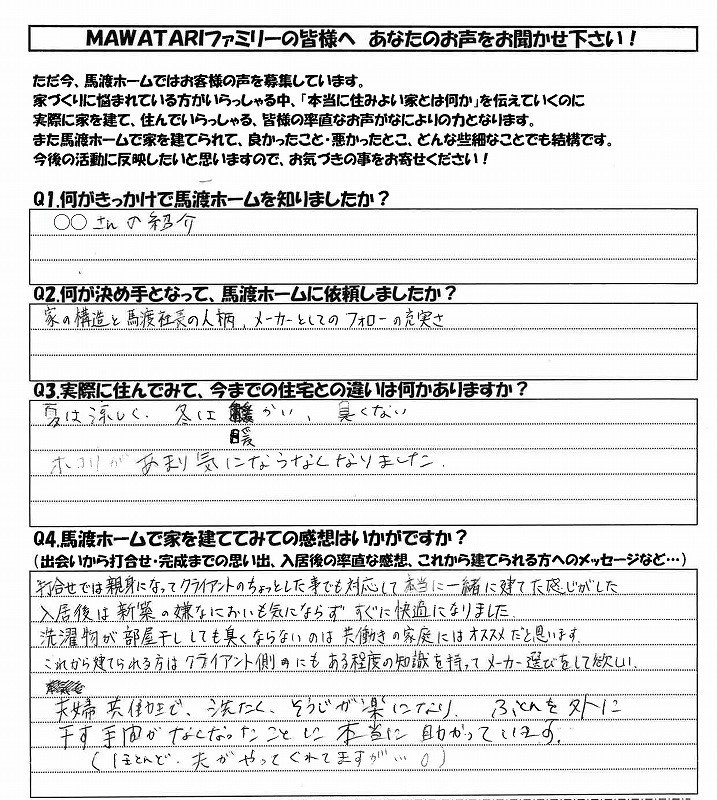 MAWATARIファミリーの皆様へ あなたのお声をお聞かせ下さい！
ただ今、馬渡ホームではお客様の声を募集しています。
家づくりに悩まれている方がいらっしゃる中、「本当に住みよい家とは何か」を伝えていくのに
実際に家を建て、住んでいらっしゃる、皆様の率直なお声がなによりの力となります。
また馬渡ホームで家を建てられて、良かったこと・悪かったとこ、どんな些細なことでも結構です。
今後の活動に反映したいと思いますので、お気づきの事をお寄せください！
Q1.何がきっかけで馬渡ホームを知りましたか？
○○さんの紹介
Q2.何が決め手となって、馬渡ホームに依頼しましたか？
家の構造と馬渡社長の人柄、メーカーとしてのフォローの充実さ
Q3.実際に住んでみて、今までの住宅との違いは何かありますか？
夏は涼しく、冬は かい、臭くない
暖
ホコリが あまり気にならなくなりました。
Q4.馬渡ホームで家を建ててみての感想はいかがですか？
（出会いから打合せ・完成までの思い出、入居後の率直な感想、これから建てられる方へのメッセージなど…）
打合せでは親身になってクライアントのちょっとした事でも対応して本当に一緒に建てた感じがした
入居後は新築の嫌なにおいも気にならず すぐに快適になりました。
洗濯物が部屋干ししても臭くならないのは共働きの家庭にはオススメだと思います。
これから建てられる方はクライアント側にもある程度の知識を持ってメーカー選びをして欲しい。
夫婦共働きで、洗たく、そうじが楽になり、ふとんを外に
干す手間がなくなったことに本当に助かっています。
（ほとんど、夫がやってくれてますが…。）